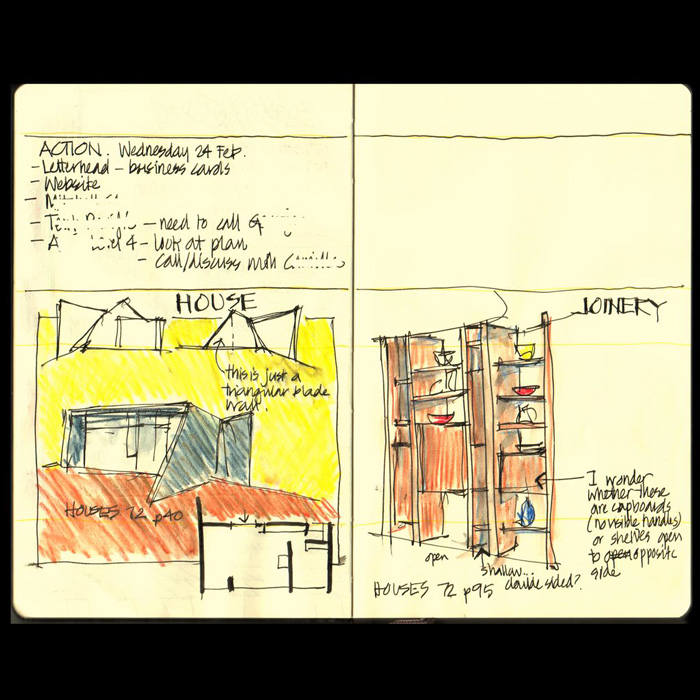 ACTION. Wednesday 24 Feb.
- Letterhead - business cards
- Website
-
- need to call
- 4 - look at plan
- call/discuss with
HOUSE
this is just a
triangular blade
wall.
HOUSES 72 p40
JOINERY
I wonder
whether these
are cupboards
(no visible handles)
or shelves open
to opposite
side
open
shallow...
double sided?
HOUSES 72 p95